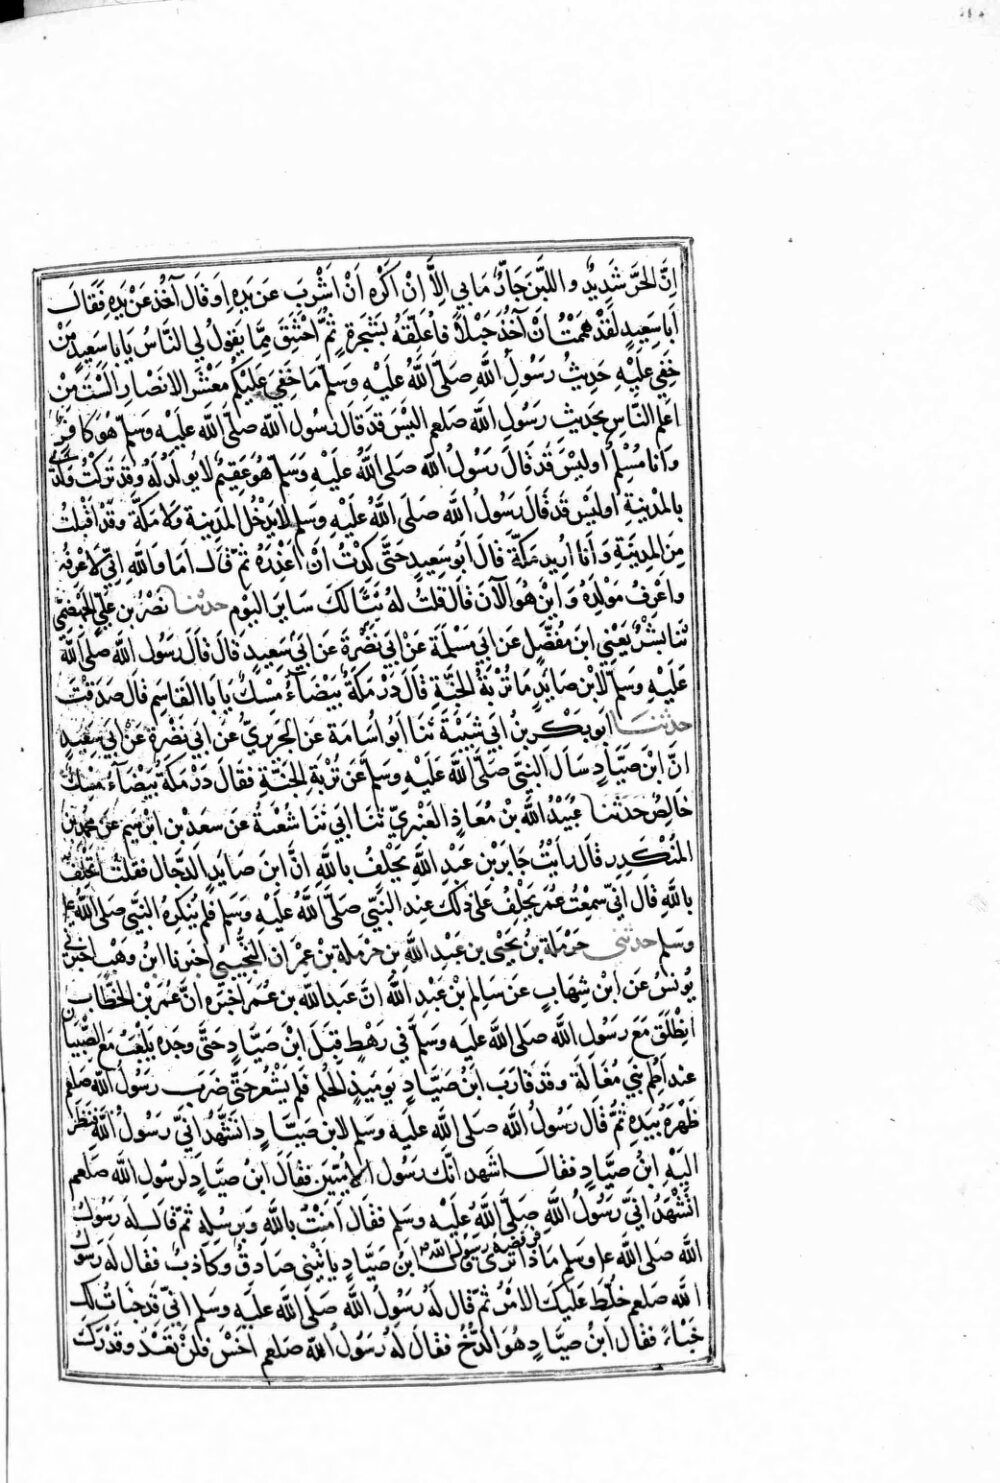 اِنَّ الحَرَّ شَدِيدٌ واللبَنَ جَادٌّ مَا بِي اِلَّا اِنْ اَكْرَه اَنْ اَشْرَبَ عَن يَدِهِ اَوقَالَ آخُذَ عَنْ يَدِهِ فَقَالَ
اَبَا سَعِيدٍ لَقَدْ هَمَمْتُ اَنْ آخُذَ حَبْلاً فَاُعَلِّقَهُ بِشَجَرَةٍ ثُمَّ اَخْتَنِقَ مِمَّا يَقُولُ لِي النَّاسُ يَا بَا سَعِيدٍ مَنْ
خَفِيَ عَلَيْهِ حَدِيثُ رَسُولِ اللَّهِ صَلَّى اللَّهُ عَلَيْهِ وَسَلَّم مَا خَفِيَ عَلَيْكُم مَعْشَرَ الاَنْصَارِ اَلَسْتَ مِنْ
اَعْلَمِ النَّاسِ بِحَدِيثِ رَسُولِ اللَّه صلعم اَلَيْسَ قَدْ قَالَ رَسُولُ اللَّه صَلَّى اللَّه عَلَيْهِ وَسَلَّم هُوَ كَافِرٌ
وَاَنَا مُسْلِمٌ اَوَلَيْسَ قَدْ قَالَ رَسُولُ اللَّه صَلى اللَّهُ عَلَيْهِ وَسَلَّم هُوَ عَقِيمٌ لا يُولَدُ لَهُ وَقَدْ تَرَكْتُ وَلَدِي
بِالمَدِينَةِ اَوَلَيْسَ قَدْ قَالَ رَسُولُ اللَّه صَلَّى اللَّهُ عَلَيْهِ وَسَلَّم لا يَدْخُلُ المَدِينَةَ وَلا مَكَّةَ وَقَدْ اَقْبَلْتُ
مِنَ المَدِينَةِ وَاَنَا اُرِيدُ مَكَّةَ قَالَ اَبُو سَعِيدٍ حَتَّى كِدْتُ اَنْ اَعْذِرَهُ ثُمَّ قَالَ اَمَا وَاللَّهِ اِنِّي لاَعْرِفُهُ
وَاَعْرِفُ مَوْلِدَهُ وَاَيْنَ هُوَ الآنَ قَالَ قُلْتُ لَهُ تَبًّا لَكَ سَايِرَ اليَوْمِ حدثنا نَصْرُ بن عَلِيٍّ الجَهْضَمِيُّ
ثَنَا بِشْرٌ يَعْنِي ابنَ مُفَضَّلٍ عَن اَبِي مَسْلَمَةَ عَنْ اَبِي نَضْرَةَ عَن اَبِي سَعِيدٍ قَالَ قَالَ رَسُولُ اللَّه صَلَّى اللَّهُ
عَلَيْهِ وَسَلَّم لاِبْنِ صَايِدٍ مَا تُرْبَةُ الجَنَّةِ قَالَ دَرْمَكَةٌ بَيْضَاءُ مِسْكٌ يَا بَا القَاسِم قَال صَدَقْتَ
حدثنَا اَبُو بَكْرِ بنُ اَبِي شَيْبَةَ ثَنَا اَبُو اُسَامَةَ عَنِ الجُرَيْرِيِّ عَنْ اَبِي نَضْرَةَ عَنْ اَبِي سَعِيدٍ
اَنَّ ابْنَ صَيَّادٍ سَاَلَ النَّبِيَّ صَلَّى اللَّهُ عَلَيْهِ وَسَلَّم عَن تُرْبَةِ الجَنَّةِ فَقَالَ دَرْمَكَةٌ بَيْضَاءُ مِسْكٌ
خَالِصٌ حَدَثَنا عُبَيْدُ اللَّهِ بْنُ مُعَاذٍ العَنْبَرِيُّ ثَنَا اَبِي ثَنَا شُعْبَةُ عَن سَعْد بْنِ ابْرَهِيم عَن مُحَمدِ بن
المُنْكَدِرِ قَالَ رَاَيْتُ جَابِرَ بن عَبْدِ اللَّهِ يَحْلِفُ بِاللَّهِ اَنَّ ابنَ صَايِدٍ الدَّجَّالُ فَقُلْتُ اَتَحْلِفُ
بِاللَّهِ قَالَ اِنِّي سَمِعْتُ عُمَرَ يَحْلِفُ عَلَى ذَلِكَ عِنْدَ النَّبِيِّ صَلَّى اللَّهُ عَلَيْهِ وَسَلَم فَلَم يُنْكِرْهُ النَّبِيُّ صَلى اللَّه عليه
وَسَلم حدثني حَرْمَلَة بن يَحْيَى بن عَبْدِ اللَّه بن حَرْمَلَةَ بْن عِمْرَانَ التُّجِيبِيُّ اَخْبَرَنَا ابنُ وَهْبٍ اَخْبَرَنِي
يُونُسُ عَن ابْنِ شِهَابٍ عَن سَالِمِ بْن عَبْدِ اللَّه اَنَّ عَبدَاللَّه بن عُمَرَ اَخْبَرَهُ اَنَّ عُمَر بْنَ الخَطَّابِ
اِنْطَلَقَ مَعَ رَسُولِ اللَّه صَلَّى اللَّه عَلَيه وَسَلَّم فِي رَهْطٍ قِبَلَ ابْنِ صَيَّادٍ حَتَّى وَجَدَهُ يَلْعَبُ مَعَ الصِّبْيَانِ
عِندَ اُطُمِ بَنِي مَغَالَةَ وَقَدْ قَارَبَ ابْنُ صَيَّادٍ يَومَيذٍ الحُلُم فَلَم يَشْعُر حَتَّى ضَرَبَ رَسُولُ اللَّه صلعم
ظَهْرَهُ بِيَدِهِ ثُمَّ قَالَ رَسُولُ اللَّه صَلى اللَّه عَلَيه وَسَلم لابنِ صَيَّادٍ اَتَشْهَدُ اَنِّي رَسُولُ اللَّهِ فَنَظَرَ
اِلَيْهِ ابنُ صَيَّادٍ فَقَالَ اَشْهَد اَنَّكَ رَسُولُ الاُمِّيِّينَ فَقَالَ ابنُ صَيَّادٍ لِرَسُولِ اللَّه صلعم
اَتَشْهَدُ اَنِّي رَسُولُ اللَّهِ صَلَّى اللَّهُ عَلَيْهِ وَسَلم فَقَالَ آمَنْتُ بِاللَّه وَبِرُسُلِهِ ثمّ قَالَ لَه رَسُولُ
اللَّه صَلى اللَّه ع وسَلم مَاذَا تَرَى قَالَ ابنُ صَيَّادٍ يَاتِيْنِي صَادِقٌ وَكَاذِبٌ فَقَالَ لَهُ رَسُولُ
اللَّه صلعم خُلِّطَ عَلَيْكَ الاَمْرُ ثمّ قَالَ لَهُ رَسُولُ اللَّه صَلَى اللَّه عَلَيْهِ وَسَلم اِنِّي قَد خَبَاتُ لَكَ
خَبَاءً فَقَالَ ابنُ صَيَّادٍ هُوَ الدُّخُّ فَقَالَ لَهُ رَسُولُ اللَّه صلعم اخْسَ فَلَنْ تَعْدُوَ قَدْرَكَ